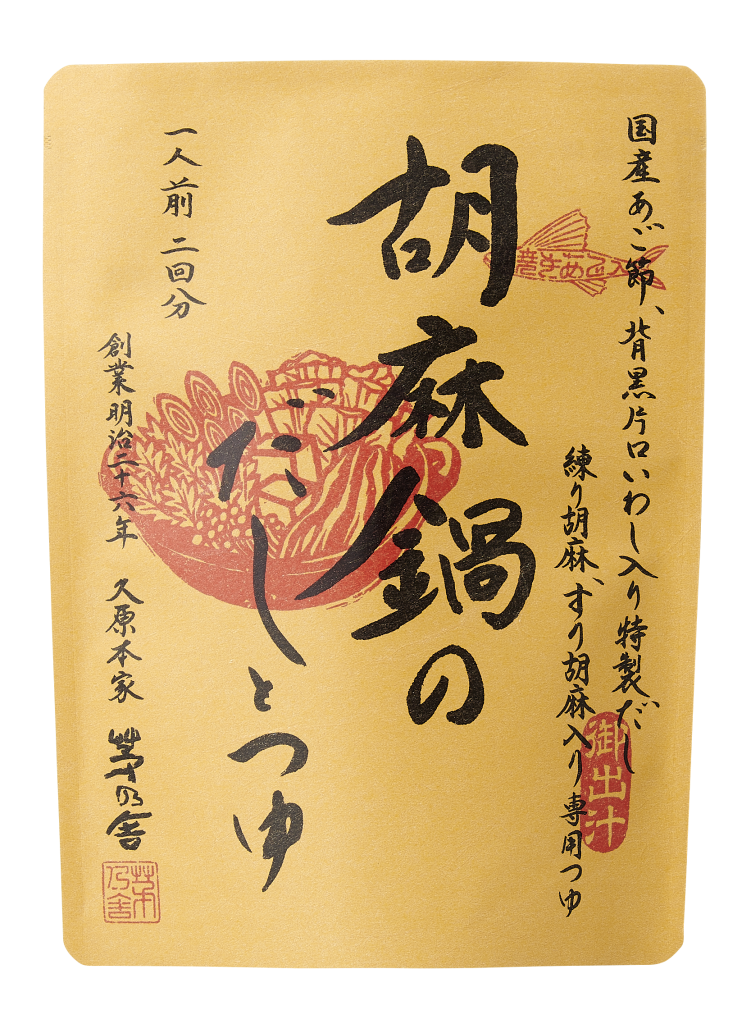 国産あご節、背黒片口いわし入り特製だし
焼きあご入
練り胡麻、すり胡麻入り専用つゆ
御出汁
胡麻鍋の
だしとつゆ
一人前 二回分
創業明治二十六年 久原本家 茅乃舎
茅乃舎